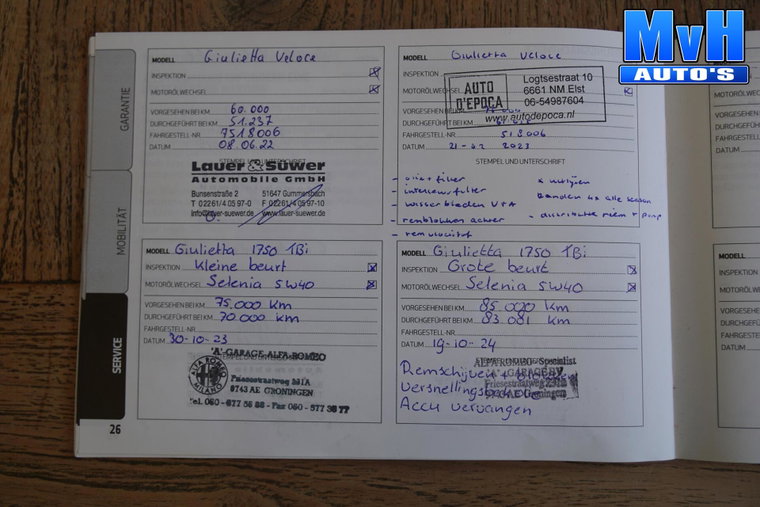 MvH
AUTO'S
GARANTIE
MOBILITÄT
SERVICE
MODELL Giulietta Veloce
INSPEKTION
MOTORÖLWECHSEL
VORGESEHEN BEI KM 60.000
DURCHGEFÜHRT BEI KM 51.237
FAHRGESTELL-NR 7518006
DATUM 08.06.22
STEMPEL UND UNTERSCHRIFT
Lauer & Süwer
Automobile GmbH
Bunsenstraße 2 51647 Gummersbach
T 02261/4 05 97-0 F 02261/4 05 97-10
info@lauer-suewer.de www.lauer-suewer.de
MODELL Giulietta Veloce
INSPEKTION
MOTORÖLWECHSEL
VORGESEHEN BEI KM
DURCHGEFÜHRT BEI KM
FAHRGESTELL-NR 518006
DATUM 2023
AUTO
D'EPOCA
Logtsestraat 10
6661 NM Elst
06-54987604
www.autodepoca.nl
STEMPEL UND UNTERSCHRIFT
- olie + filter
- interieurfilter
- wisserbladen V+A
- remblokken achter
- remvloeistof
banden 4x alle seizoen
- distributie riem + pomp
MODELL Giulietta 1750 TBi
INSPEKTION Kleine beurt
MOTORÖLWECHSEL Selenia 5W40
VORGESEHEN BEI KM 75.000 Km
DURCHGEFÜHRT BEI KM 70.000 Km
FAHRGESTELL-NR
DATUM 30-10-23
'A' GARAGE ALFA ROMEO
ALFA ROMEO
MILANO
Friesestraatweg 231A
9743 AE GRONINGEN
Tel. 050 - 577 38 88 - Fax 050 - 577 38 77
MODELL Giulietta 1750 TBi
INSPEKTION Grote beurt
MOTORÖLWECHSEL Selenia 5W40
VORGESEHEN BEI KM 85.000 Km
DURCHGEFÜHRT BEI KM 83.081 Km
FAHRGESTELL-NR
DATUM 19-10-24
ALFA ROMEO Specialist
'A' GARAGE BV
Friesestraatweg 231A
Groningen
Remschijven +
Versnellingsbak
Accu vervangen
26